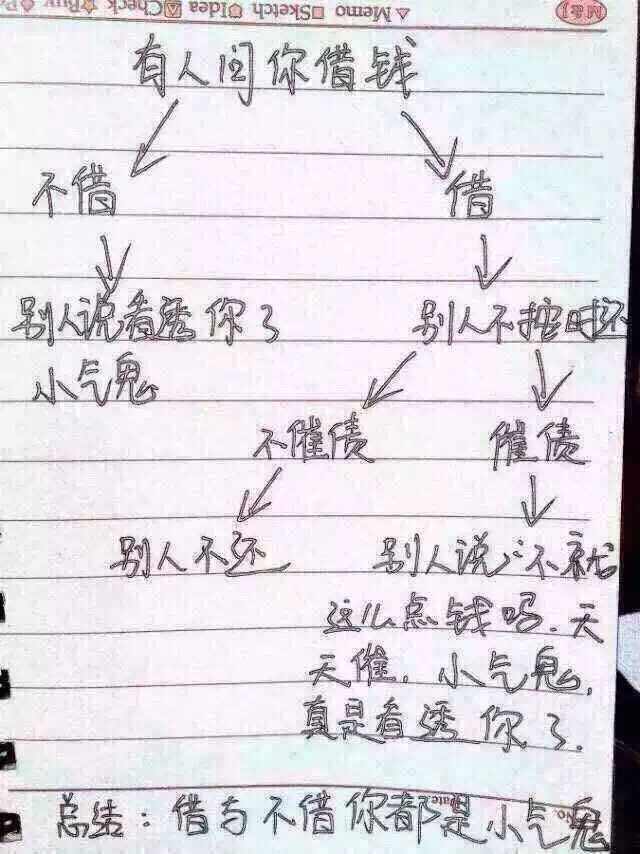 △Memo □Sketch ♡Idea ☑Check ☆Buy
有人问你借钱
不借
借
别人说看透你了
小气鬼
别人不按时还
不催债
催债
别人不还
别人说：不就
这么点钱吗.天
天催.小气鬼.
真是看透你了.
Date
No
总结：借与不借你都是小气鬼